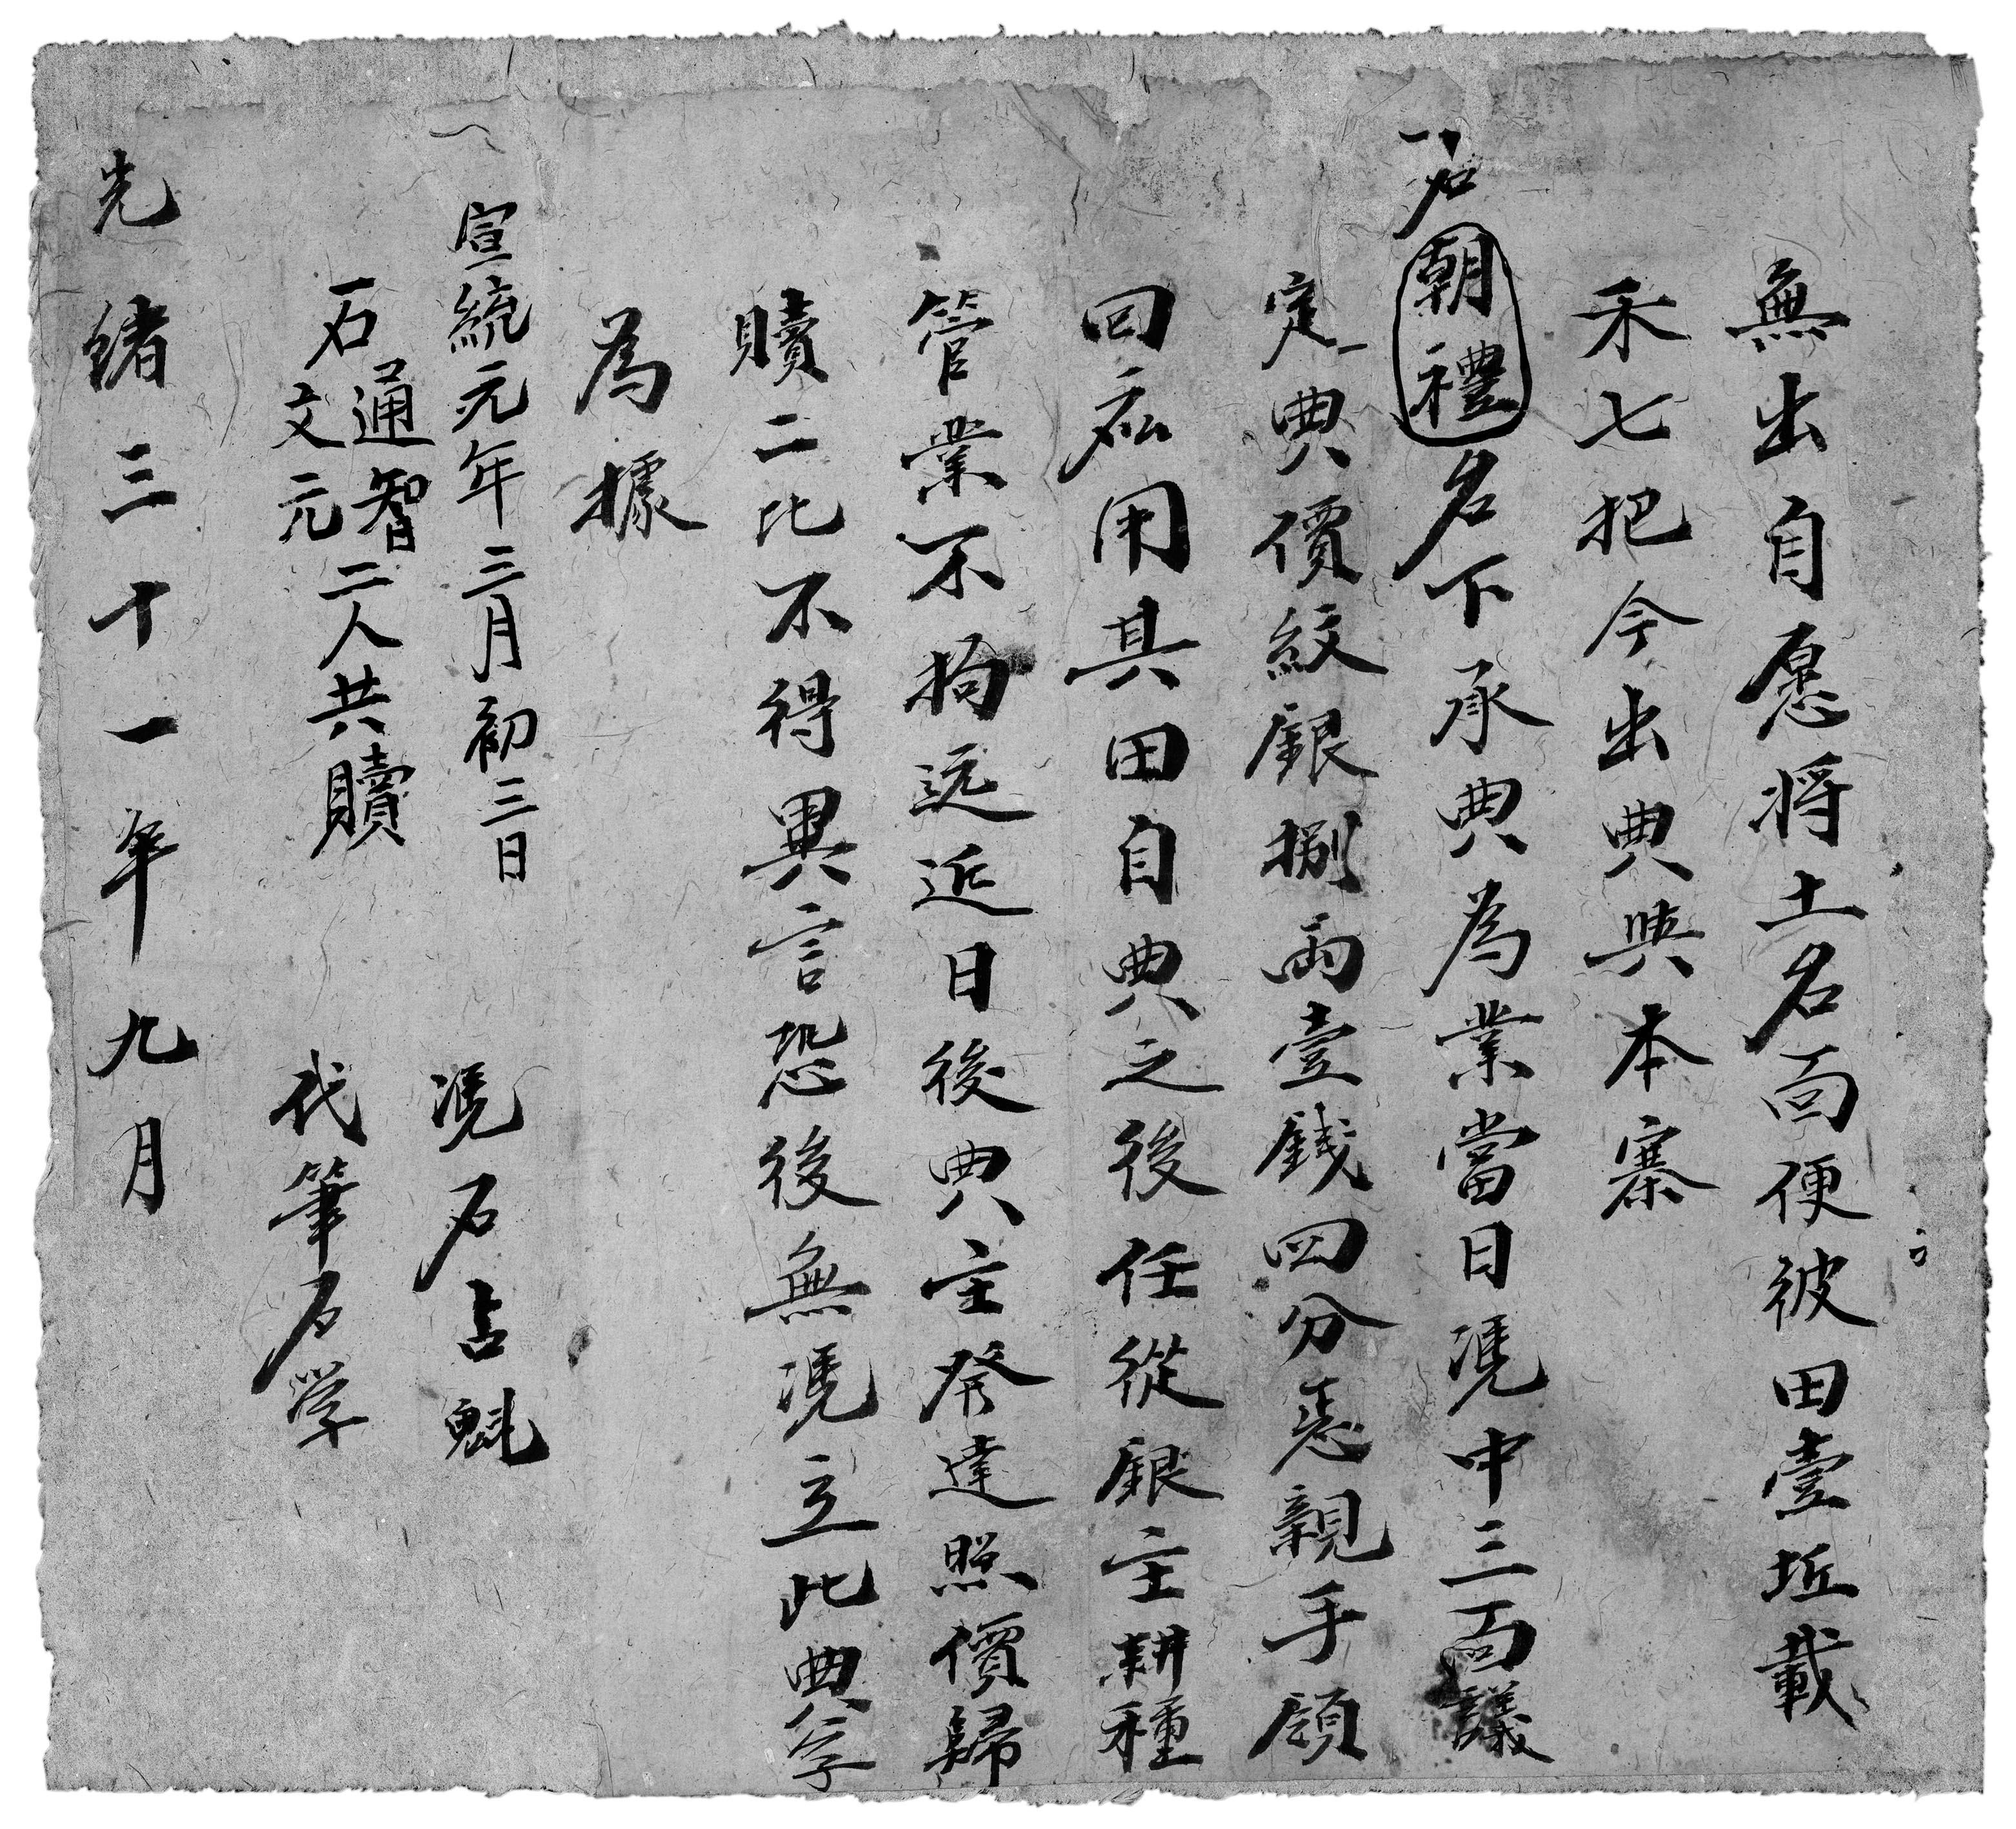 無出自愿將土名面便彼田壹坵載
禾七把今出典與本寨
石朝禮名下承典為業當日凴中三面議
定典價紋銀捌兩壹錢四分悉親手領
回應用其田自典之後任從銀主耕種
管業不拘远近日後典主發達照價歸
贖二比不得異言恐後無凴立此典字
為據
宣統元年三月初三日
凴石占魁
石通智文元二人共贖
代筆石学
光緒三十一年九月